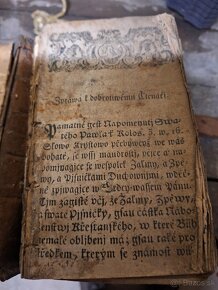 Zpráwa k dobrotiwému Čtenáři
Pamatné gest Napomenutj Swa-
tého Pawla k Kolos. 3. w. 16.
Slowo Krystowo přebýwey we wás
bohatě, se wšj maudrostj, včjce a na-
pomjnagjce se wespolek Žalmy, a Zpě-
wy, a Pjsničkami Duchownjmi, wděč-
ně zpjwagjce w Srdcy wassem Pánu.
Tjm zagisté věj, že Žalmy, Zpěwy,
a swaté Pjsničky, gsau částka Nábo-
ženstwj Křesťanského, w které Bůh
nemalé oblijbenj má; gsau také pro-
středkem, kterým se známost